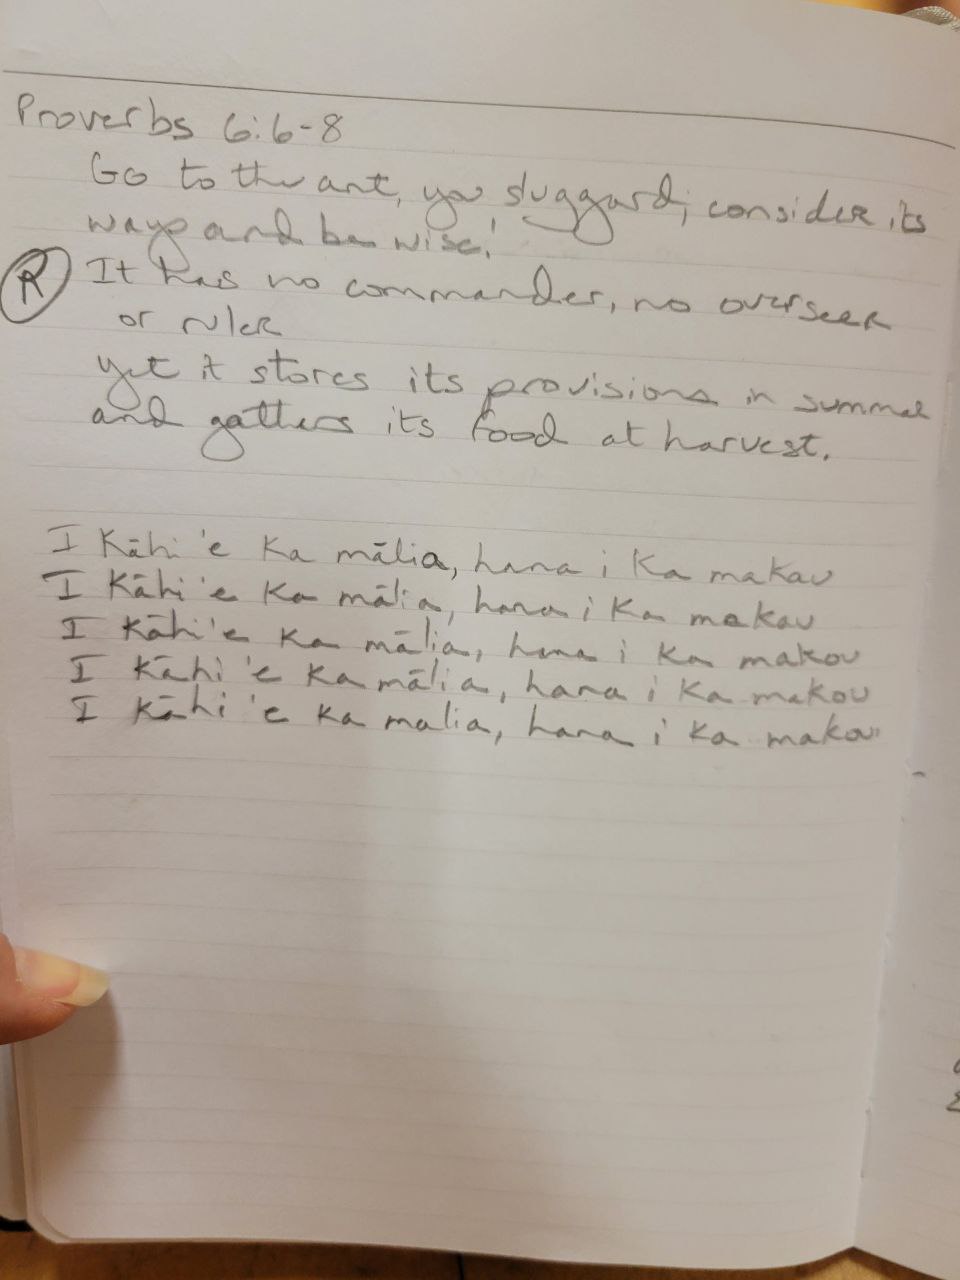 Proverbs 6:6-8
Go to the ant, you sluggard; consider its
ways and be wise!
R It has no commander, no overseer
or ruler
yet it stores its provisions in summer
and gathers its food at harvest.
I Kāhi 'e Ka mālia, hana i Ka makau
I Kāhi 'e Ka mālia, hana i Ka makau
I Kāhi 'e Ka mālia, hana i Ka makau
I Kāhi 'e Ka mālia, hana i Ka makau
I Kāhi 'e Ka malia, hana i Ka makau